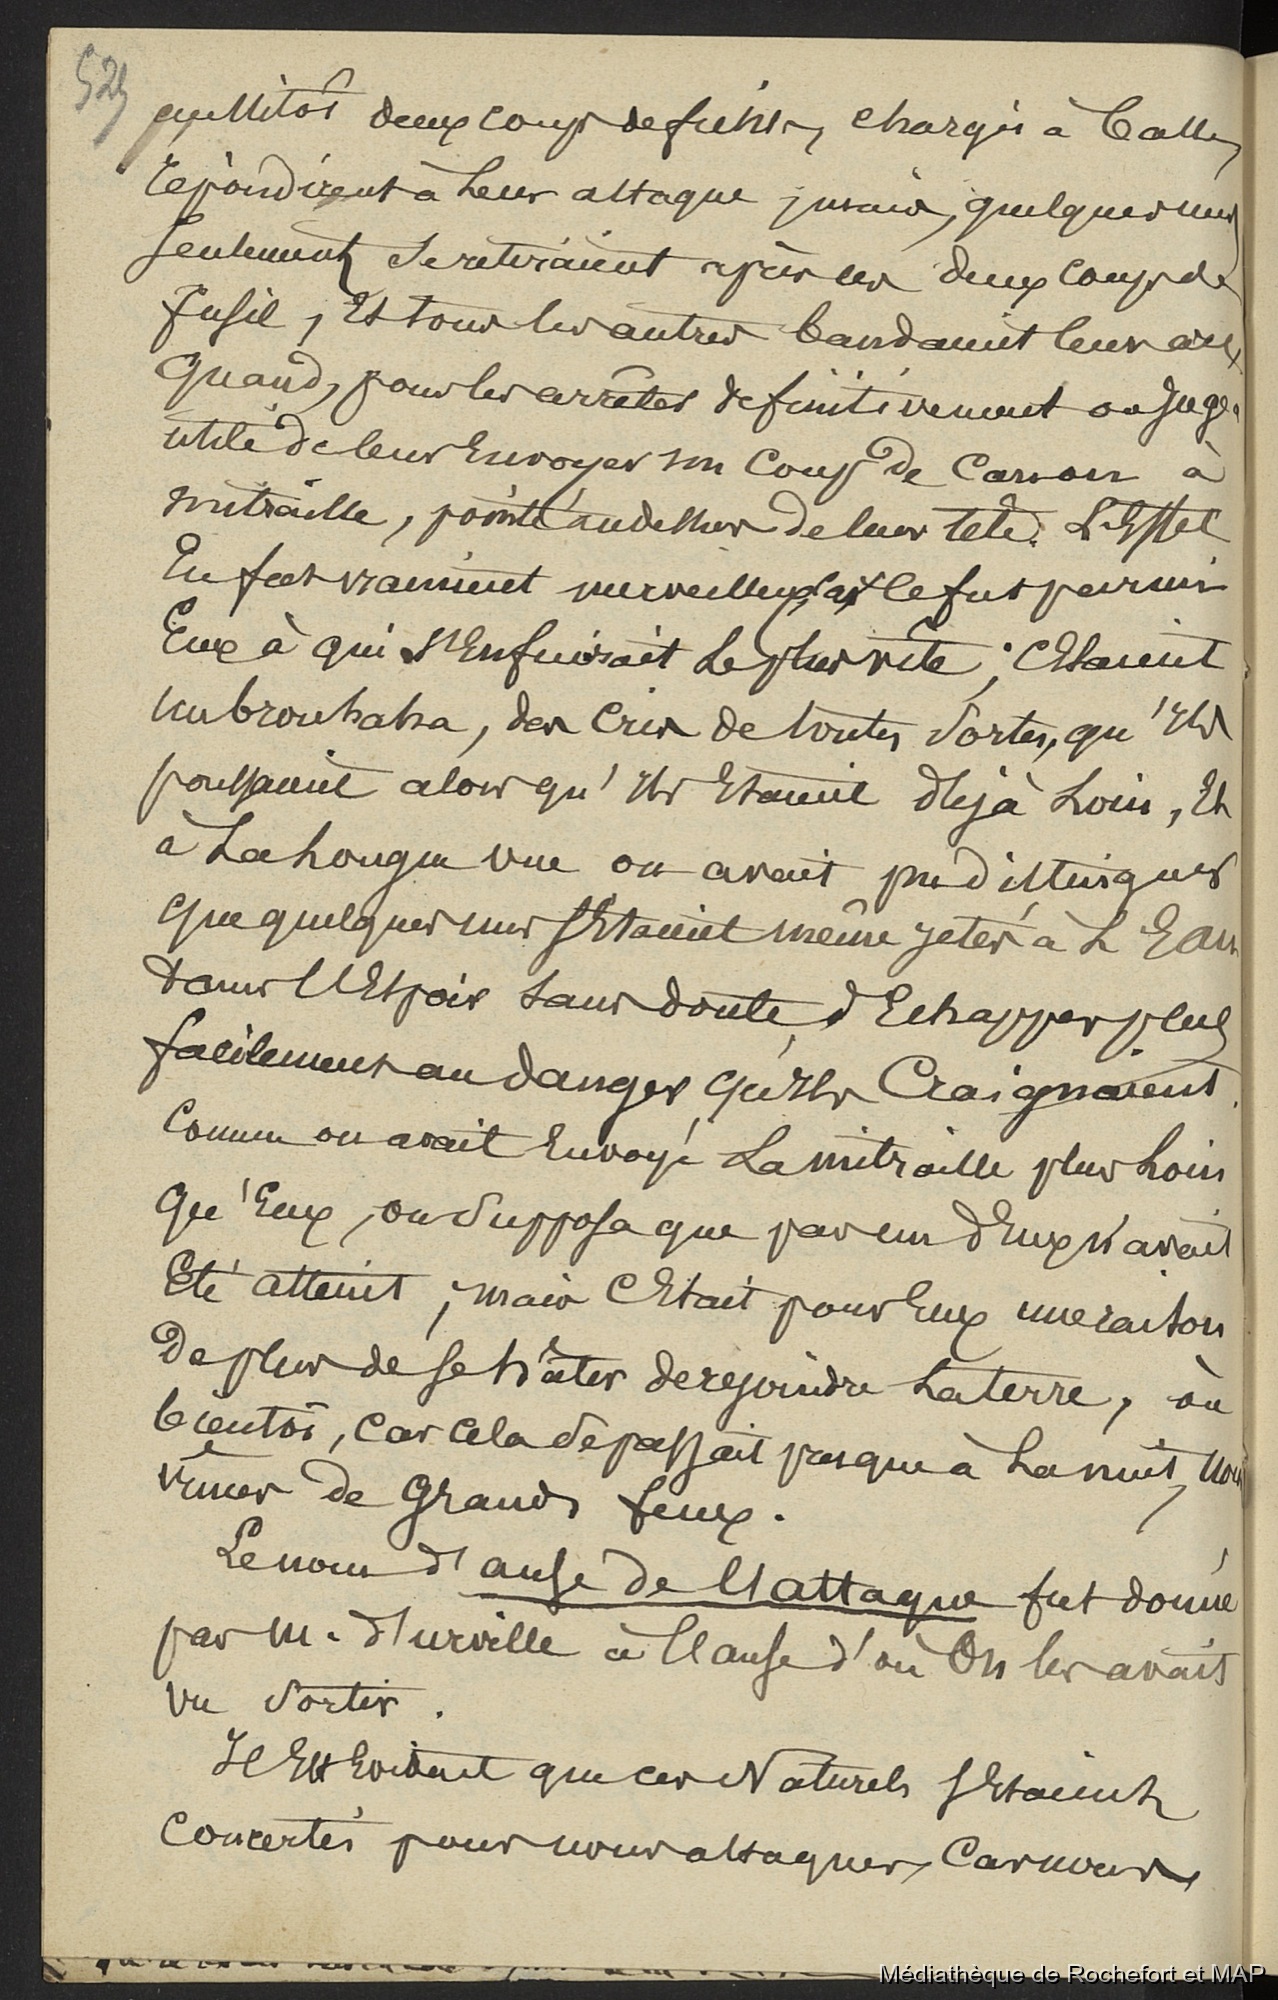 525
aussitôt deux coups de fusils, chargés à balle,
répondirent à leur attaque ; mais, quelques uns
seulement se retiraient après ces deux coups de
fusil, et tous les autres bandaient leurs arcs,
quand, pour les arrêter definitivement on jugea
utile de leur envoyer un coup de canon à
mitraille, pointé au dessus de leur tête. L'effet
en fut vraiment merveilleux, car ce fut parmi
eux à qui s'enfuirait le plus vite ; c'etaient
un brouhaha, des cris de toutes sortes, qu'ils
poussaient alors qu'ils etaient déjà loin, et
à la longue vue on avait pu distinguer
que quelques uns s'etaient même jetés à l'eau
dans l'espoir sans doute d'echapper plus
facilement au danger qu'ils craignaient.
Comme on avait envoyé la mitraille plus loin
qu'eux, on supposa que pas un d'eux n'avait
eté atteint ; mais c'etait pour eux une raison
de plus de se hâter de rejoindre la terre, où
bientôt, car cela se passait presque à la nuit, nous
vîmes de grands feux.
Le nom d'anse de l'attaque fut donné
par M. d'urville à l'anse d'où on les avait
vu sortir.
Il est evident que ces naturels s'etaient
concertés pour nous attaquer, car nous
Médiathèque de Rochefort et MAP